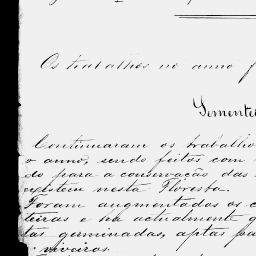 Os trabalhos no anno f
Sementei
Continuaram os trabalho
o anno, sendo feitos com
do para a conservação das
existem nesta Floresta.
Foram augmentados os c
teiras e ha actualmente q
tas germinadas, aptas pa
viveiros.